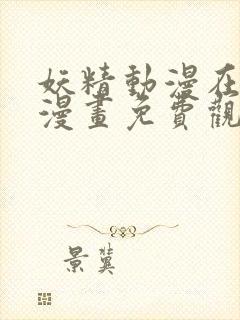 妖精動漫在
漫畫免費觀
景冀